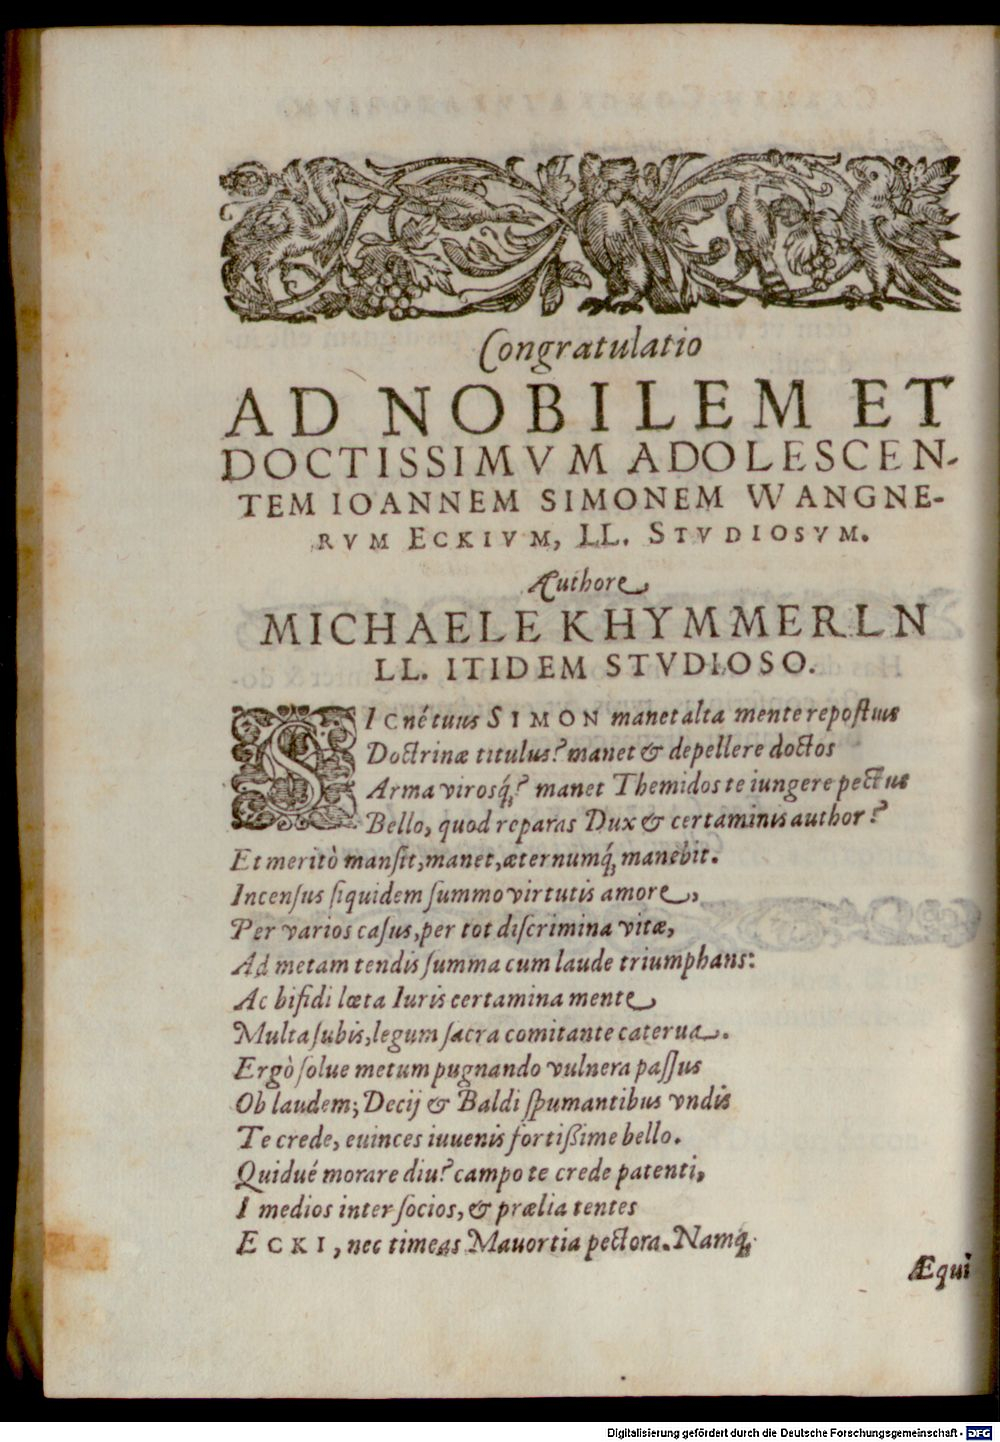 Congratulatio
AD NOBILEM ET
DOCTISSIMVM ADOLESCEN-
TEM IOANNEM SIMONEM WANGNE-
RVM ECKIVM, LL. STVDIOSVM.
Authore
MICHAELE KHYMMERLN
LL. ITIDEM STVDIOSO.
SICné tuus SIMON manet alta mente repostus
Doctrinæ titulus? manet & depellere doctos
Arma virosq́;? manet Themidos te iungere pectus
Bello, quod reparas Dux & certaminis author?
Et meritò mansit, manet, æternumq́; manebit.
Incensus siquidem summo virtutis amore,
Per varios casus, per tot discrimina vitæ,
Ad metam tendis summa cum laude triumphans:
Ac bifidi læta Iuris certamina mente
Multa subis, legum sacra comitante caterua.
Ergò solue metum pugnando vulnera passus
Ob laudem; Decij & Baldi spumantibus vndis
Te crede, euinces iuuenis fortißime bello.
Quidué morare diu? campo te crede patenti,
I medios inter socios, & prælia tentes
ECKI, nec timeas Mauortia pectora. Namq́;
Æqui
Digitalisierung gefördert durch die Deutsche Forschungsgemeinschaft - DFG